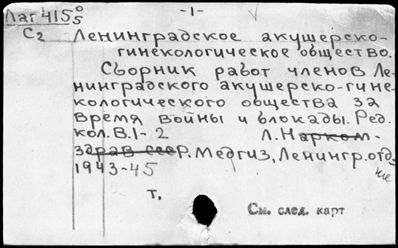 Лаг 415 0/5
-1-
С2 Ленинградское акушерско-
гинекологическое общество.
Сборник работ членов Ле-
нинградского акушерско-гине-
кологического общества за
время войны и блокады. Ред.
кол. В. 1-2 Л. Нарком-
здрав СССР. Медгиз, Ленингр. отд-
ние
1943-45
Т.
См. след. карт